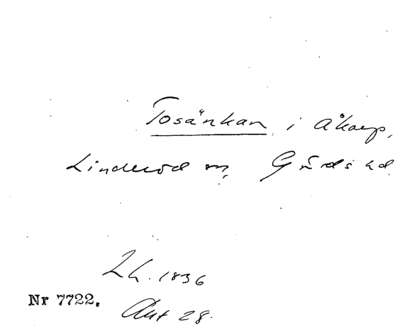 Tosänkan i Åkarp,
Linderöd sn, Gärds hd.
Lh. 1836
Nr 7722. Akt 28.